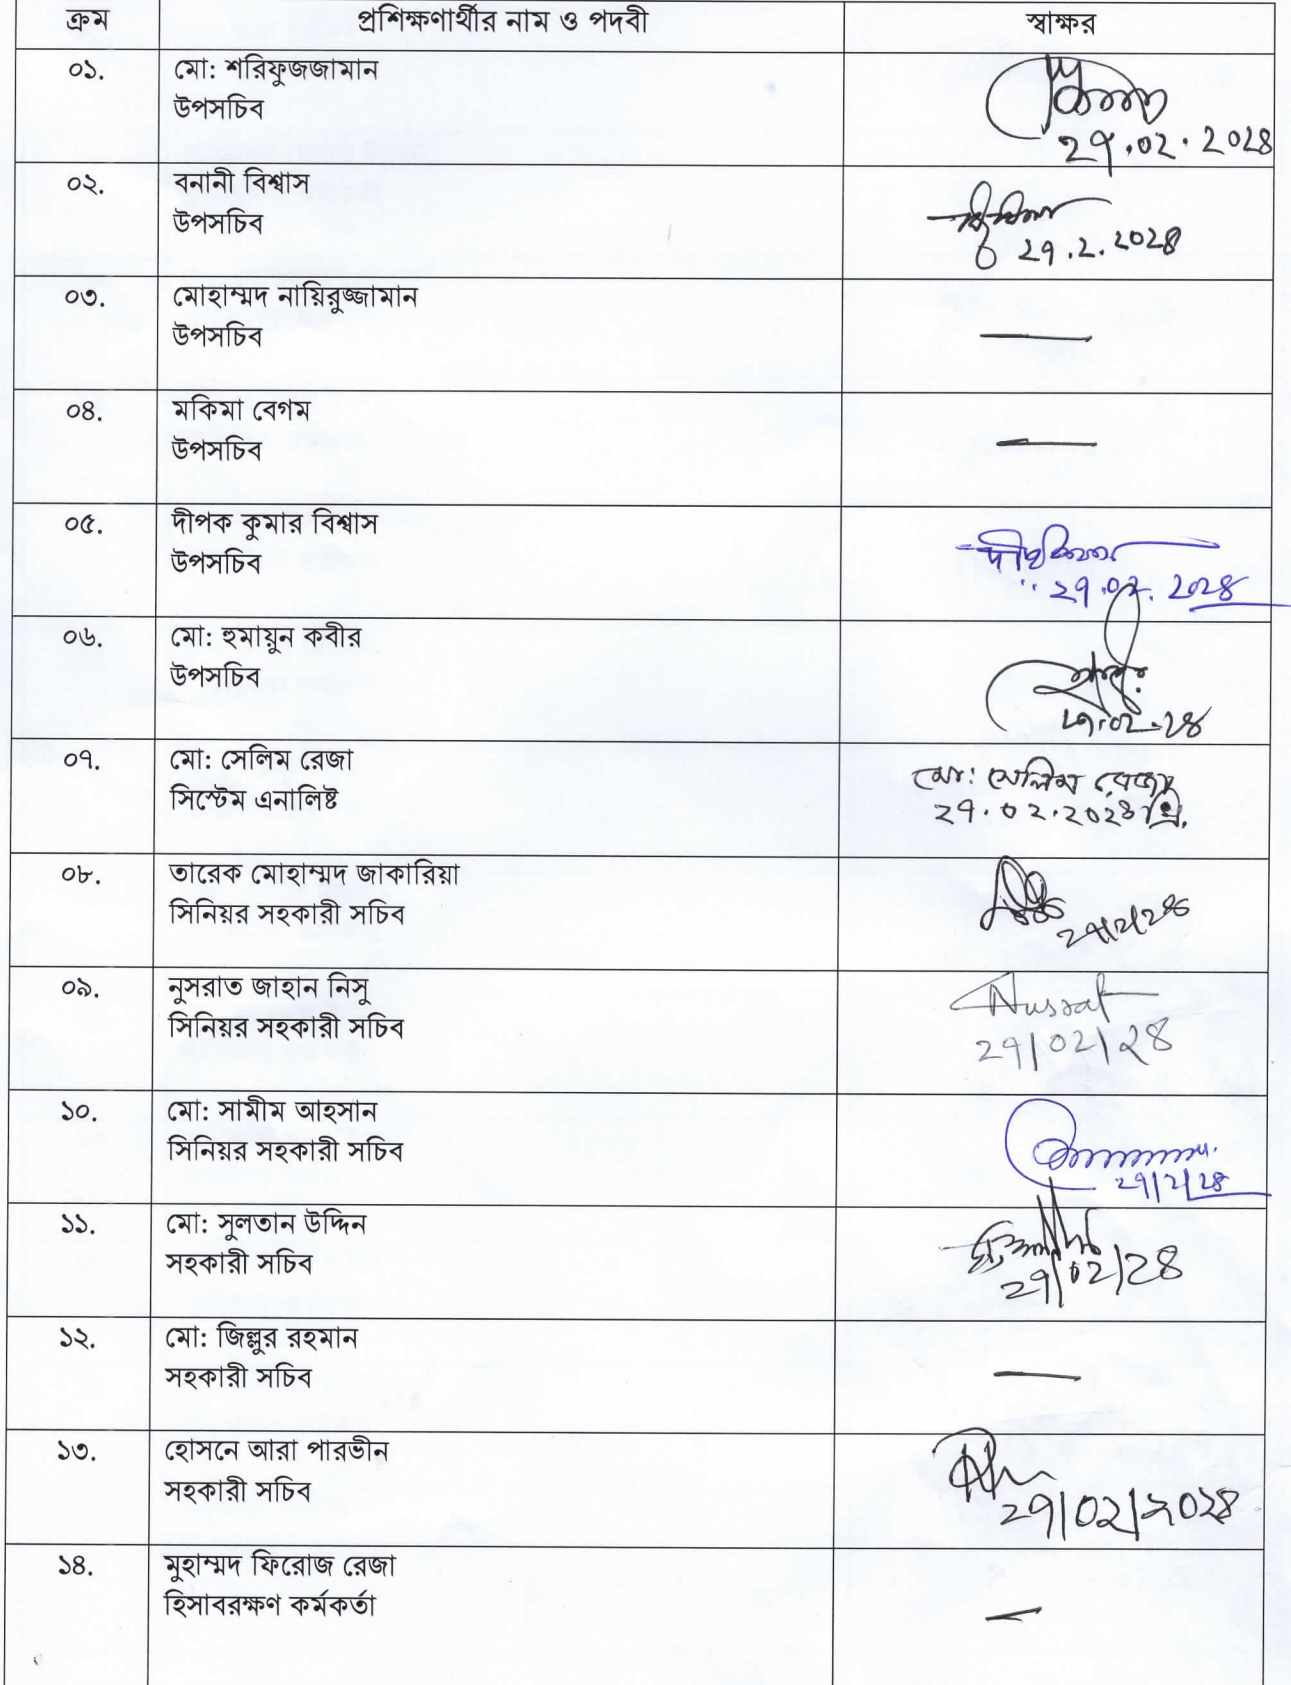 ক্রম প্রশিক্ষণার্থীর নাম ও পদবী স্বাক্ষর
০১. মো: শরিফুজজামান
উপসচিব
২৭.০২.২০২৪
০২. বনানী বিশ্বাস
উপসচিব
২৭.২.২০২৪
০৩. মোহাম্মদ নায়িরুজ্জামান
উপসচিব
০৪. মকিমা বেগম
উপসচিব
০৫. দীপক কুমার বিশ্বাস
উপসচিব
২৭.০২.২০২৪
০৬. মো: হুমায়ুন কবীর
উপসচিব
২৭.০২.২৪
০৭. মো: সেলিম রেজা
সিস্টেম এনালিষ্ট
মো: সেলিম রেজা
২৭.০২.২০২৪ খ্রি.
০৮. তারেক মোহাম্মদ জাকারিয়া
সিনিয়র সহকারী সচিব
২৭/২/২৪
০৯. নুসরাত জাহান নিসু
সিনিয়র সহকারী সচিব
Nusrat
২৭/০২/২৪
১০. মো: সামীম আহসান
সিনিয়র সহকারী সচিব
২৭/২/২৪
১১. মো: সুলতান উদ্দিন
সহকারী সচিব
২৭/০২/২৪
১২. মো: জিল্লুর রহমান
সহকারী সচিব
১৩. হোসনে আরা পারভীন
সহকারী সচিব
২৭/০২/২০২৪
১৪. মুহাম্মদ ফিরোজ রেজা
হিসাবরক্ষণ কর্মকর্তা